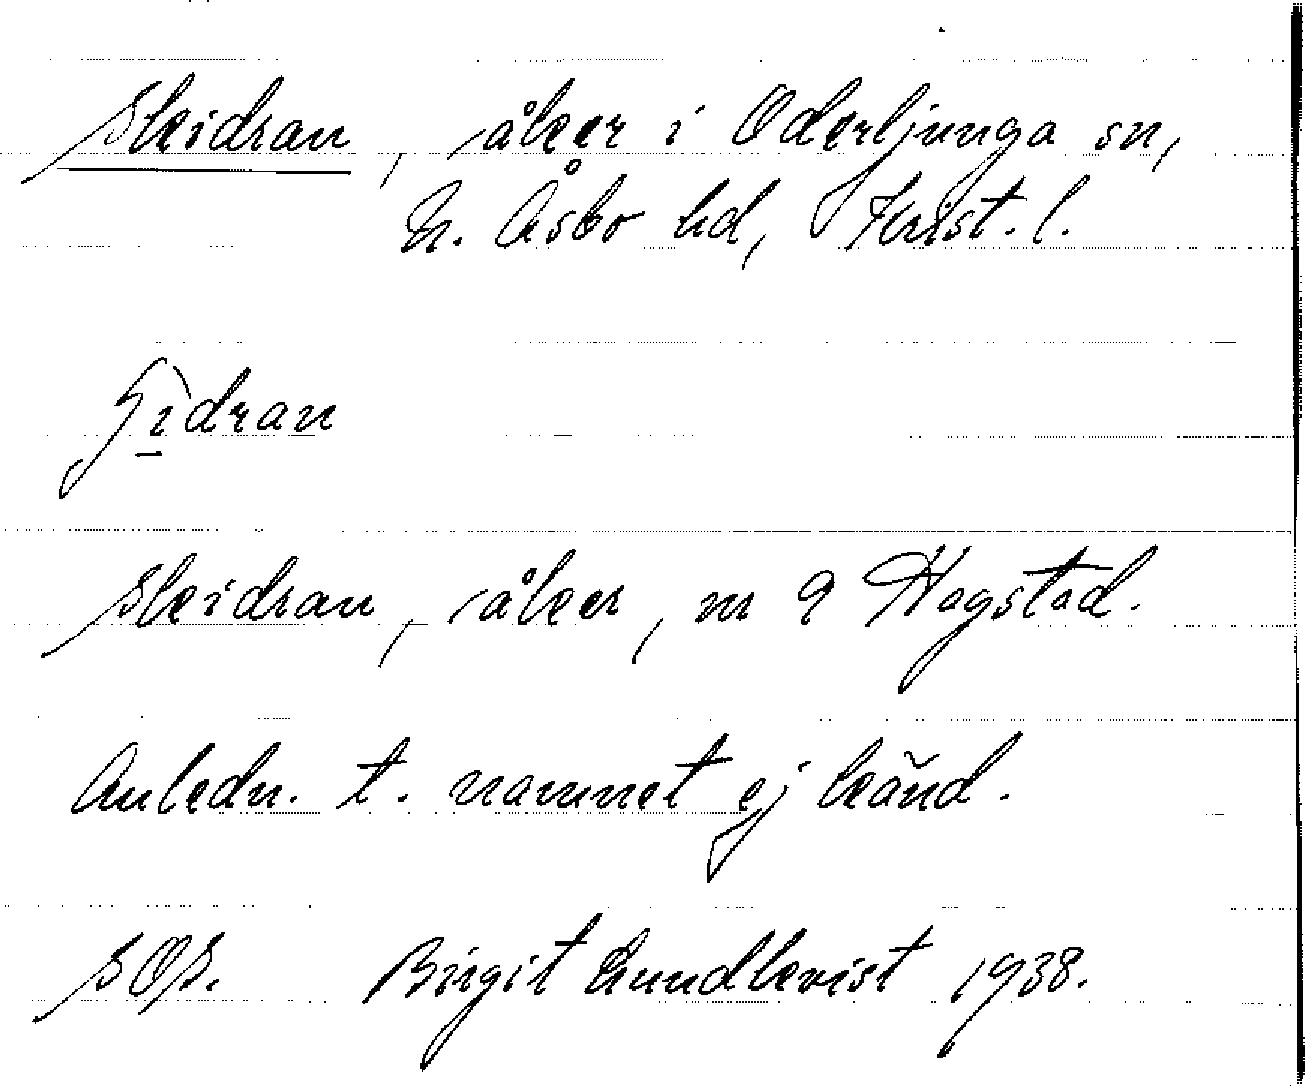 Skidran, åker i Oderljunga sn,
N. Åsbo hd, Krist. l.
skidran, åker, nr 9 Hagstad.
Anledn. t. namnet ej känd.
Birgit Lundkvist 1938.